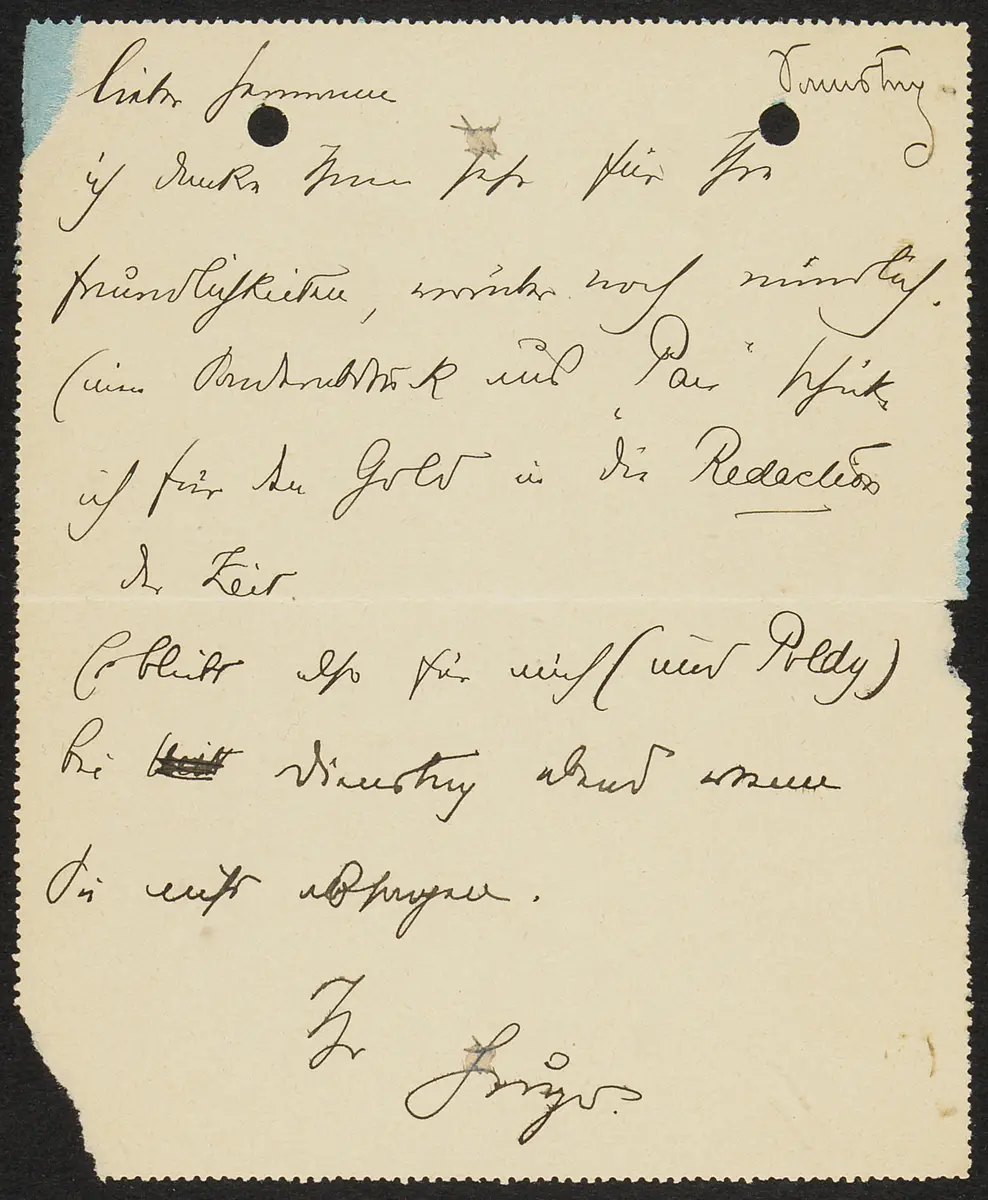 Samstag
lieber Hermann
ich danke Ihnen sehr für Ihre
freundlichkeiten, worüber noch mündlich.
Einen Sonderabdruck aus „Pan“ schicke
ich für den Gold in die Redaction
der Zeit.
Es bleibt also für mich (und Poldy)
bei Dienstag abend wenn
Sie nicht absagen.
Ihr
Hugo.